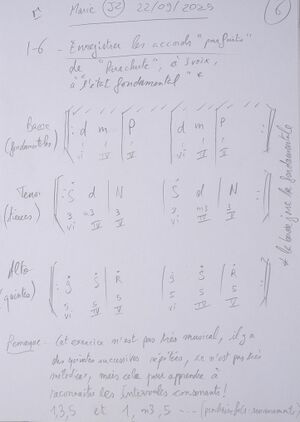 Marie J2 22/09/2025 6
1-6 - Enregistrer les accords "parfaits"
de "Parachute", à 3 voix,
à "l'état fondamental" *
Basse ‖: d m | P d m | P :‖
(fondamentales) 1 1 1 1 1 1
vi IV V vi IV V
Tenor ‖: S d | N S d | N :‖
(tierces) 3 m3 3 3 m3 3
vi IV V vi IV V
Alto ‖: g S | R g S | R :‖
(quintes) 5 5 5 5 5 5
vi IV V vi IV V
* la basse joue la fondamentale
Remarque : Cet exercice n'est pas très musical, il y a
des quintes successives répétées, ce n'est pas très
mélodieux, mais cela pour apprendre à
reconnaitre les Intervalles consonants!
1,3,5 et 1, m3, 5 ---